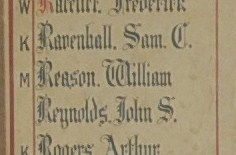 W Ratcliff, Frederick
K Ravenhall, Sam. C.
M Reason, William
Reynolds, John S.
K Rogers, Arthur